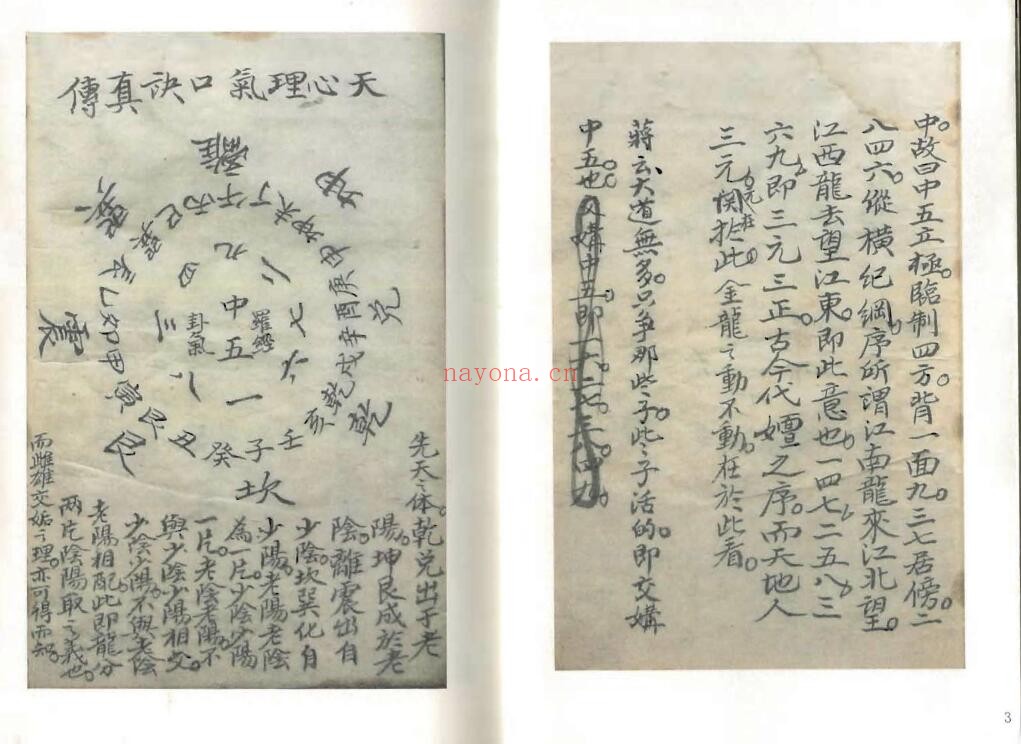 中。故曰中五立極。臨制四方。背一面九。三七居傍。二
八四六。縱橫紀綱。序所謂江南龍來江北望。
江西龍去望江東。即此意也。一四七二五八三
六九即三元三正古今代嬗之序。而天地人
三元関於此。金龍之動不動。在於此看。
蔣云大道無多。只爭那些子。些子活的。即交媾
中五也。
天心理氣口訣真傳
離
坤
兌
乾
坎
艮
震
巽
壬子癸丑艮寅甲卯乙辰巽巳丙午丁未坤申庚酉辛戌乾亥
九
二
七
六
一
八
三
四
中五
羅經
卦氣
先天之体。乾兌出于老
陽。坤艮成於老
陰。離震出自
少陰。坎巽化自
少陽。老陽老陰
為一片。少陰少陽
一片。老陰老陽。不
與少陰少陽相交。
少陰少陽。不與老陰
老陽相配。此即龍分
兩片陰陽取之義也。
而雌雄交姤之理。亦可得而知。
nayona.cn
3